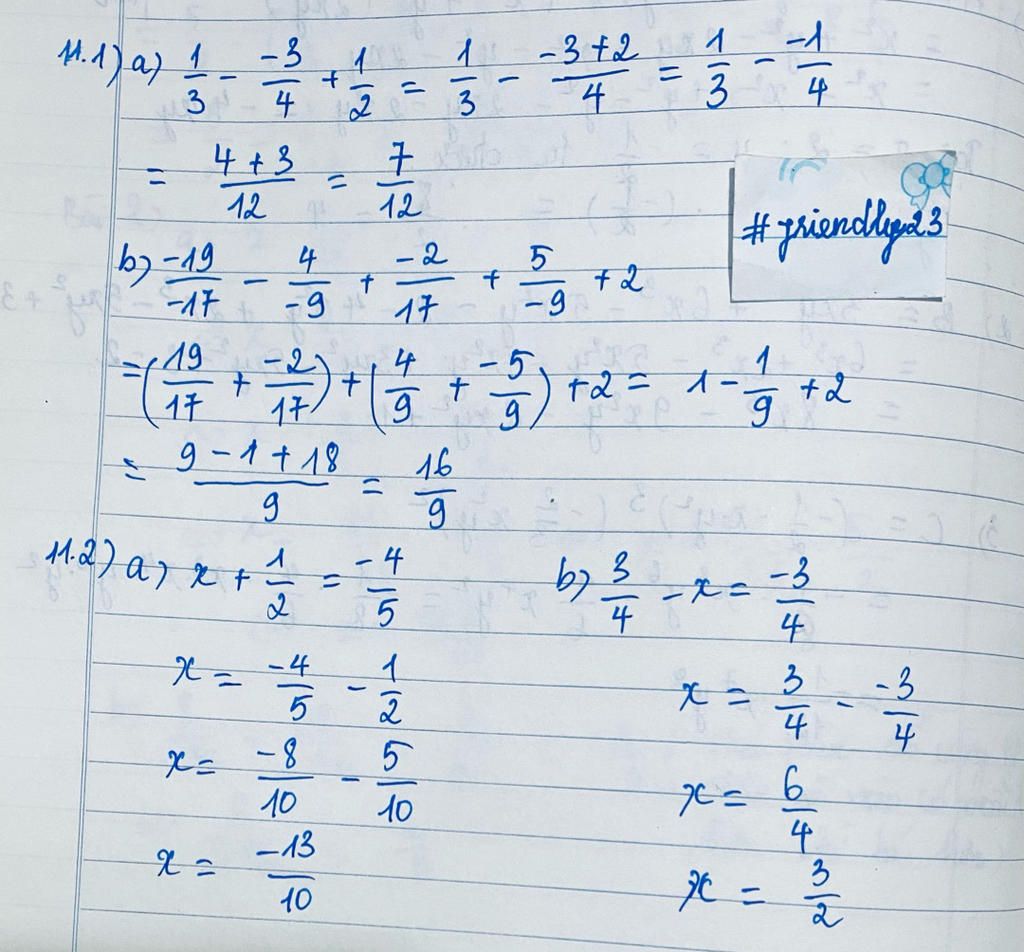 11.1) a) 1/3 - -3/4 + 1/2 = 1/3 - -3+2/4 = 1/3 - -1/4
= 4+3/12 = 7/12
#friendly23
b) -19/-17 - 4/-9 + -2/17 + 5/-9 + 2
= (19/17 + -2/17) + (4/9 + -5/9) + 2 = 1 - 1/9 + 2
= 9-1+18/9 = 16/9
11.2) a) x + 1/2 = -4/5
x = -4/5 - 1/2
x = -8/10 - 5/10
x = -13/10
b) 3/4 - x = -3/4
x = 3/4 - -3/4
x = 6/4
x = 3/2